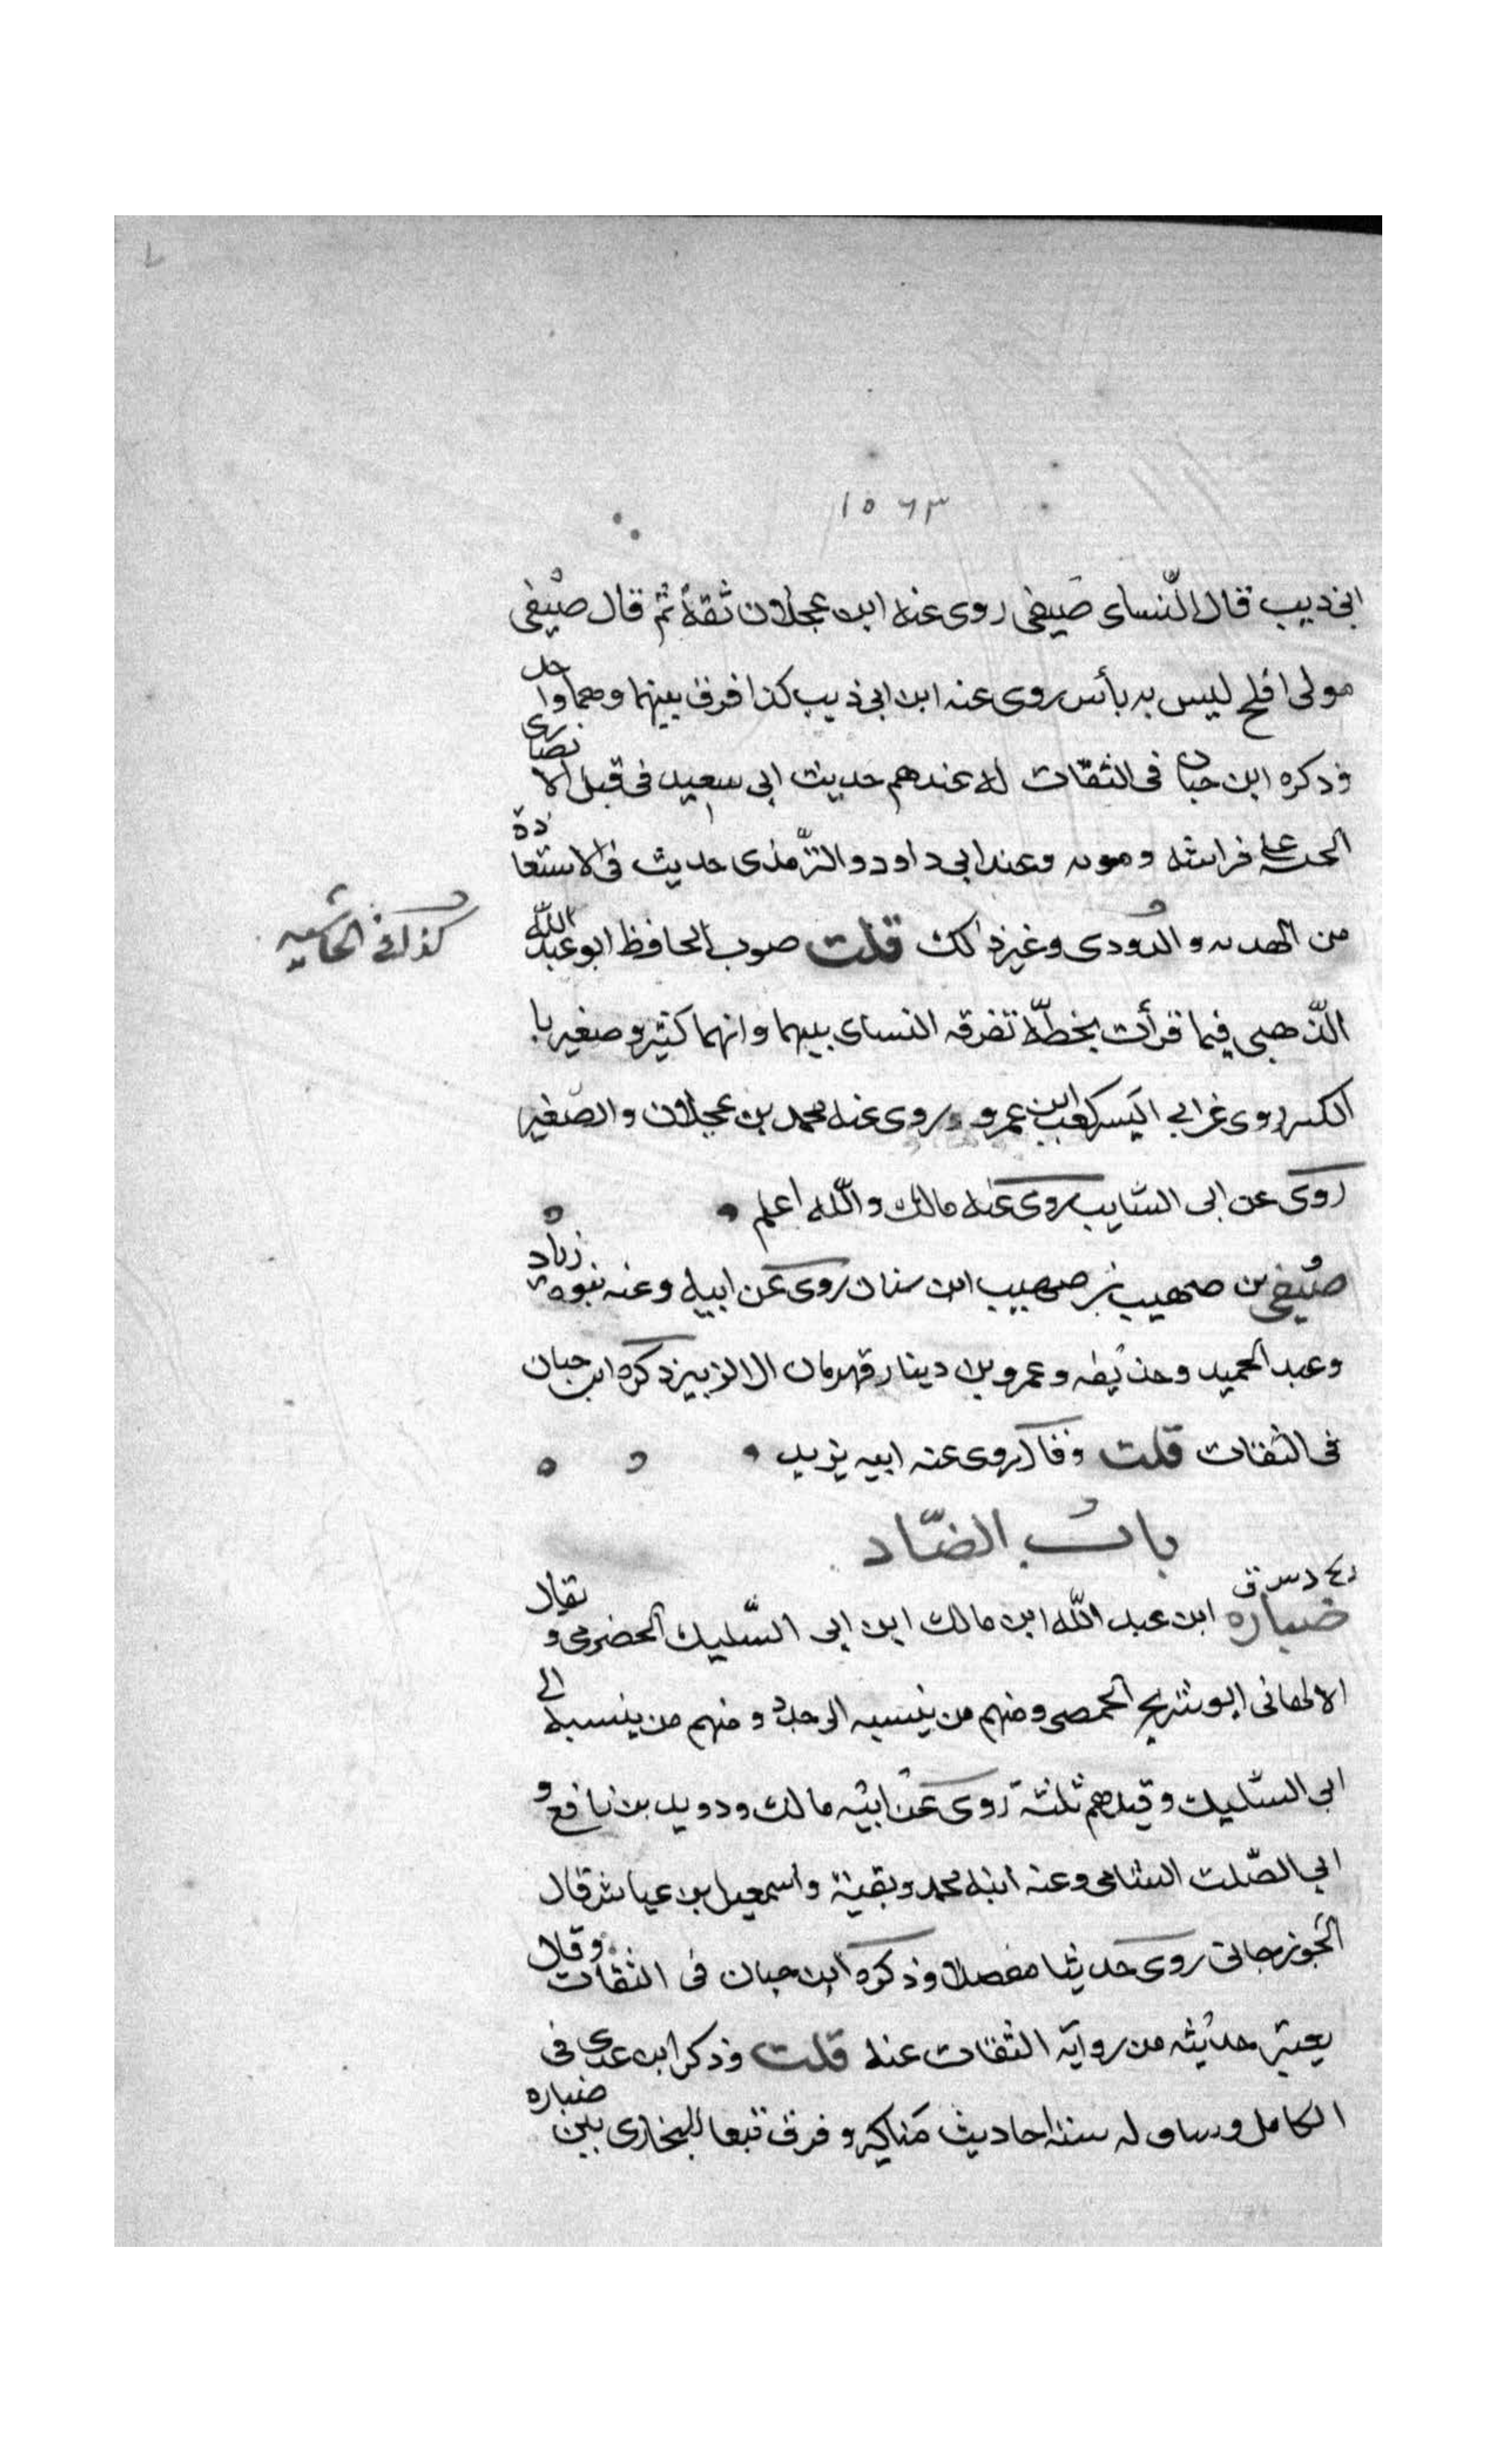 ١٥٦٣
ابي ذيب قال النّساى صَيفى روى عنه ابن عجلان ثقة ثم قال صيفى
مولى افلح ليس به بأس روى عنه ابن ابي ذيب كذا فرق بينهما وهما واحد
وذكره ابن حبان فى الثقات له عندهم حديث ابى سعيد فى قبل الانصارى
الحـه على فراشه وموته وعند ابى داود والترّمذى حديث فى الاستعاذة
من الهدم والتردى وغير ذلك قلت صوب الحافظ ابو عبد الله
كذا فى الحاشيه
الذّهبى فيما قرأت بخطّه تفرقه النساى بينهما وانهما كبير وصغير با
لكبير روى عن ابى اليسر كعب ابن عمرو وروى عنه محمد بن عجلان والصّغير
روى عن ابى السّايب روى عنه مالك واللّه اعلم
صيفى بن صهيب بن صهيب ابن سنان روى عن ابيه وعنه بنوه زياد
وعبد الحميد وحذيفه وعمرو بن دينار قهرمان ال الزبير ذكره ابن حبان
فى الثقات قلت وقال روى عنه ابيه يزيد
باب الضّاد
د س ق
ضباره ابن عبد اللّه ابن مالك ابن ابى السّليك الحضرمى ويقال
الالهانى ابو شريح الحمصى ومنهم من ينسبه الى جده ومنهم من ينسبه الى
ابى السّليك وقيل هم ثلثة روى عن ابيه مالك ودويد بن نافع و
ابى الصّلت الشامى وعنه ابنه محمد وبقية واسمعيل بن عياش قال
الجوزجانى روى حديثا مفصلا وذكره ابن حبان فى الثقات وقال
يعتبر حديثه من رواية الثقات عنه قلت وذكر ابن عدى فى
الكامل وساق له ستة احاديث مناكير وفرق تبعا للبخارى بين ضباره